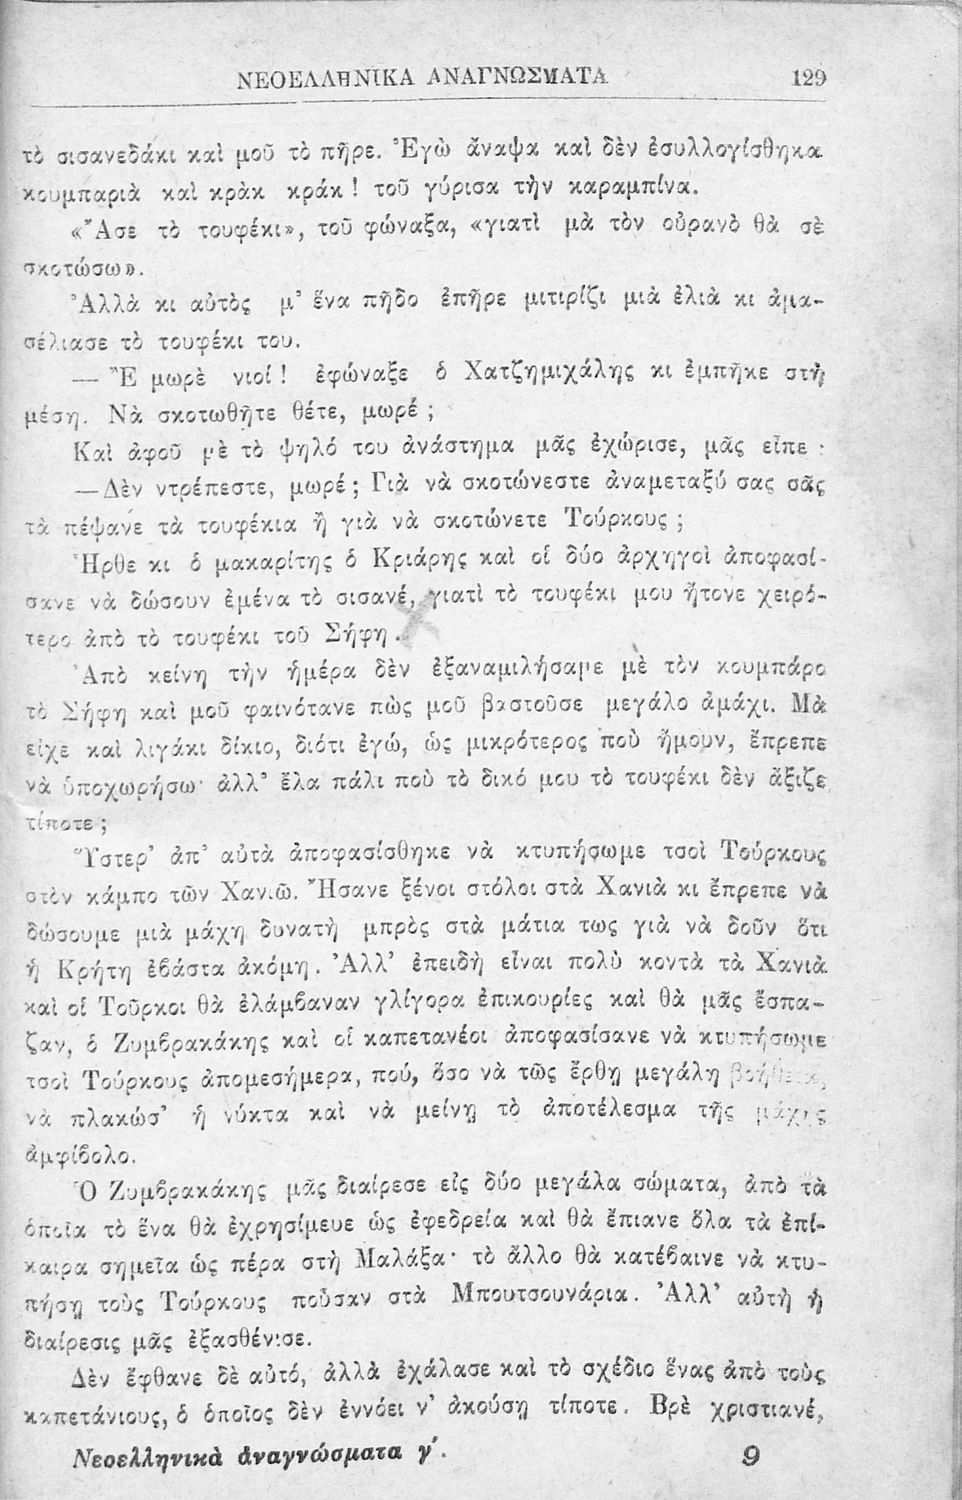 ΝΕΟΕΛΛΗΝΙΚΑ ΑΝΑΓΝΩΣΜΑΤΑ 129
τὸ σισανεδάκι καὶ μοῦ τὸ πῆρε. Ἐγὼ ἄναψα καὶ δὲν ἐσυλλογίσθηκα
κουμπαριὰ καὶ κρὰκ κράκ! τοῦ γύρισα τὴν καραμπίνα.
«Ἄσε τὸ τουφέκι», τοῦ φώναξα, «γιατὶ μὰ τὸν οὐρανὸ θὰ σὲ
σκοτώσω».
Ἀλλὰ κι αὐτὸς μ' ἕνα πῆδο ἐπῆρε μιτιρίζι μιὰ ἐλιὰ κι ἀμα-
σέλιασε τὸ τουφέκι του.
— Ἔ μωρὲ νιοί! ἐφώναξε ὁ Χατζημιχάλης κι ἐμπῆκε στὴ
μέση. Νὰ σκοτωθῆτε θέτε, μωρέ;
Καὶ ἀφοῦ μὲ τὸ ψηλό του ἀνάστημα μᾶς ἐχώρισε, μᾶς εἶπε:
—Δὲν ντρέπεστε, μωρέ; Γιὰ νὰ σκοτώνεστε ἀναμεταξύ σας σᾶς
τὰ πέψανε τὰ τουφέκια ἢ γιὰ νὰ σκοτώνετε Τούρκους;
Ἦρθε κι ὁ μακαρίτης ὁ Κριάρης καὶ οἱ δύο ἀρχηγοὶ ἀποφασί-
σανε νὰ δώσουν ἐμένα τὸ σισανέ, γιατὶ τὸ τουφέκι μου ἤτονε χειρό-
τερο ἀπὸ τὸ τουφέκι τοῦ Σήφη.
Ἀπὸ κείνη τὴν ἡμέρα δὲν ἐξαναμιλήσαμε μὲ τὸν κουμπάρο
τὸ Σήφη καὶ μοῦ φαινότανε πὼς μοῦ βαστοῦσε μεγάλο ἀμάχι. Μὰ
εἶχε καὶ λιγάκι δίκιο, διότι ἐγώ, ὡς μικρότερος ποὺ ἤμουν, ἔπρεπε
νὰ ὑποχωρήσω· ἀλλ' ἔλα πάλι ποὺ τὸ δικό μου τὸ τουφέκι δὲν ἄξιζε
τίποτε;
Ὕστερ' ἀπ' αὐτὰ ἀποφασίσθηκε νὰ κτυπήσωμε τσοὶ Τούρκους
στὸν κάμπο τῶν Χανιῶ. Ἤσανε ξένοι στόλοι στὰ Χανιὰ κι ἔπρεπε νὰ
δώσουμε μιὰ μάχη δυνατὴ μπρὸς στὰ μάτια τως γιὰ νὰ δοῦν ὅτι
ἡ Κρήτη ἐβάστα ἀκόμη. Ἀλλ' ἐπειδὴ εἶναι πολὺ κοντὰ τὰ Χανιὰ
καὶ οἱ Τοῦρκοι θὰ ἐλάμβαναν γλίγορα ἐπικουρίες καὶ θὰ μᾶς ἔσπα-
ζαν, ὁ Ζυμβρακάκης καὶ οἱ καπετανέοι ἀποφασίσανε νὰ κτυπήσωμε
τσοὶ Τούρκους ἀπομεσήμερα, πού, ὅσο νὰ τῶς ἔρθῃ μεγάλη βοήθεια,
νὰ πλακώσ' ἡ νύκτα καὶ νὰ μείνῃ τὸ ἀποτέλεσμα τῆς μάχης
ἀμφίβολο.
Ὁ Ζυμβρακάκης μᾶς διαίρεσε εἰς δύο μεγάλα σώματα, ἀπὸ τὰ
ὁποῖα τὸ ἕνα θὰ ἐχρησίμευε ὡς ἐφεδρεία καὶ θὰ ἔπιανε ὅλα τὰ ἐπί-
καιρα σημεῖα ὡς πέρα στὴ Μαλάξα· τὸ ἄλλο θὰ κατέβαινε νὰ κτυ-
πήσῃ τοὺς Τούρκους ποὖσαν στὰ Μπουτσουνάρια. Ἀλλ' αὐτὴ ἡ
διαίρεσις μᾶς ἐξασθένισε.
Δὲν ἔφθανε δὲ αὐτό, ἀλλὰ ἐχάλασε καὶ τὸ σχέδιο ἕνας ἀπὸ τοὺς
καπετάνιους, ὁ ὁποῖος δὲν ἐννόει ν' ἀκούσῃ τίποτε. Βρὲ χριστιανέ,
Νεοελληνικὰ ἀναγνώσματα γ΄. 9